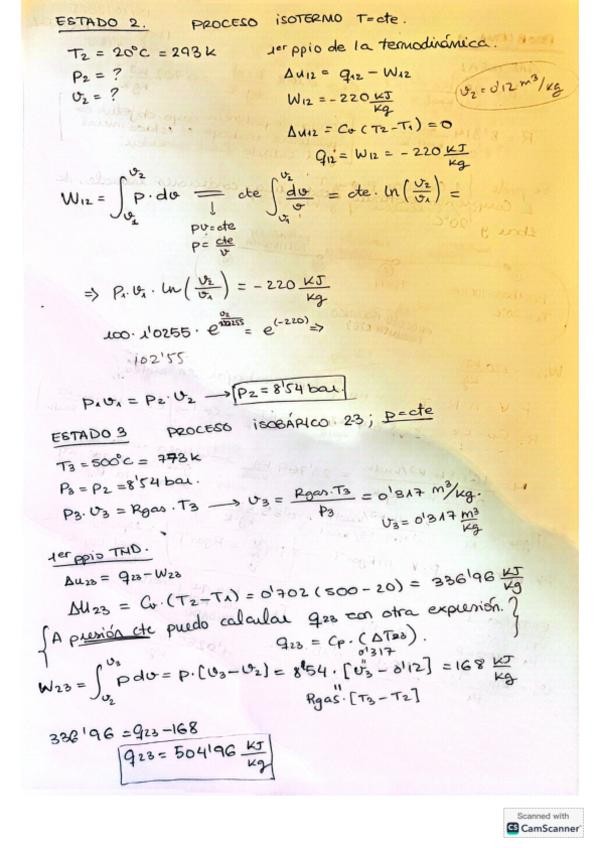 ESTADO 2. PROCESO ISOTERMO T=cte.
T2 = 20°C = 293K 1er ppio de la termodinámica.
P2 = ? Δu12 = q12 - W12 v2 = 0'12 m³/kg
v2 = ? W12 = -220 KJ/Kg
Δu12 = Cv (T2-T1) = 0
q12 = W12 = -220 KJ/Kg
W12 = ∫ p·dv = cte ∫ dv/v = cte · ln(v2/v1) =
pv=cte
p = cte/v
⇒ P1·v1·ln(v2/v1) = -220 KJ/Kg
100·1'0255 · e = e^(-220) ⇒
102'55
P1v1 = P2·v2 → P2 = 8'54 bar
ESTADO 3 PROCESO ISOBÁRICO 2-3; p=cte
T3 = 500°C = 773K
P3 = P2 = 8'54 bar.
P3·v3 = Rgas·T3 → v3 = Rgas·T3/P3 = 0'317 m³/kg.
v3 = 0'317 m³/kg
1er ppio TMD.
Δu23 = q23 - W23
Δu23 = Cv·(T2-T1) = 0'702 (500-20) = 336'96 KJ/Kg
{A presión cte puedo calcular q23 con otra expresión.}
q23 = Cp·(ΔT23).
0'317
W23 = ∫ p dv = p·[v3-v2] = 8'54·[v3-0'12] = 168 KJ/Kg
Rgas·[T3-T2]
336'96 = q23 - 168
q23 = 504'96 KJ/Kg
Scanned with
CS CamScanner